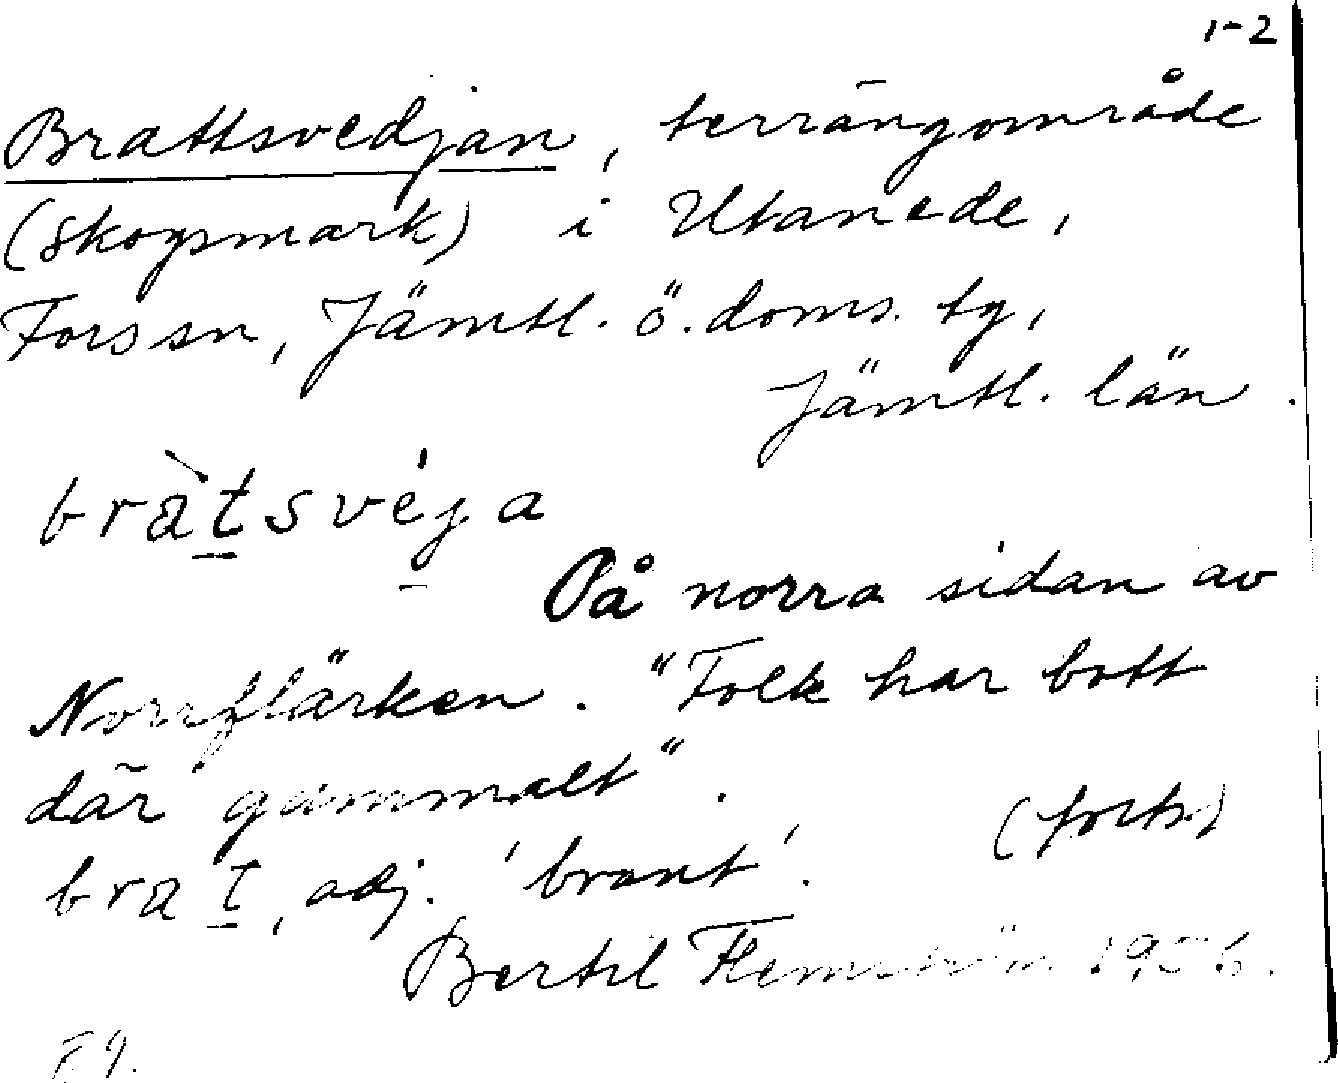 1-2
Brattsvedjan, terrängområde
(skogsmark) i Utanede,
Forssn, Jämtl. ö. doms. tg,
Jämtl. län.
bràt̲svéj̲a
På norra sidan av
Norrflärken. "Folk har bott
där gammalt".
(forts.)
brat̲, adj. 'brant'.
Bertil Flemström 1956.